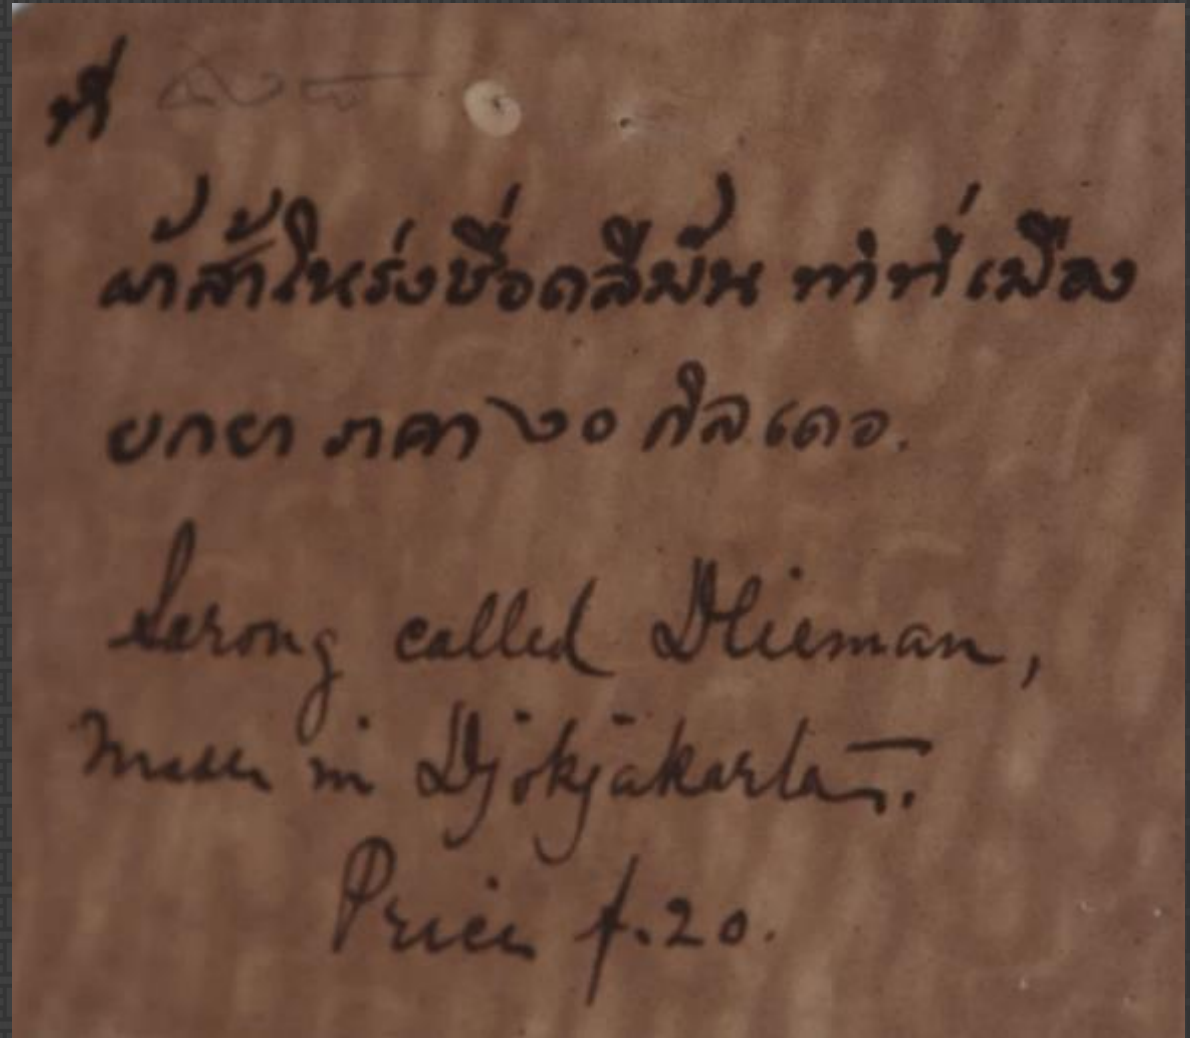 ที่
ผ้าสาโหร่งชื่อดลีมัน ทำที่เมือง
ยกยา ราคา ๒๐ กิลเดอ.
Serong called Dlieman,
Made in Djokjakarta.
Price f.20.